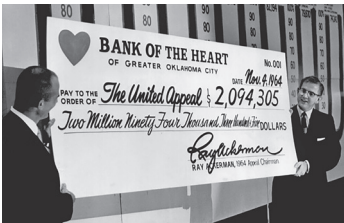 80
90
80
BANK OF THE HEART
OF GREATER OKLAHOMA CITY
No. 001
DATE Nov. 4, 1964
PAY TO THE
ORDER OF The United Appeal $ 2,094,305
Two Million Ninety Four Thousand Three Hundred Five DOLLARS
Ray Ackerman
RAY ACKERMAN, 1964 Appeal Chairman